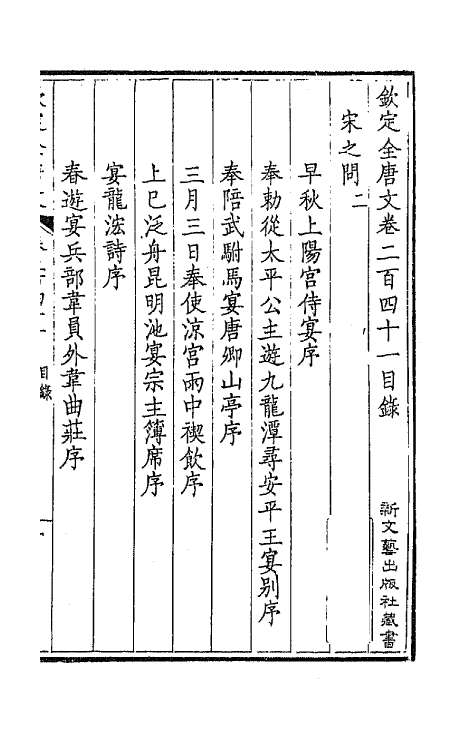 欽定全唐文卷二百四十一目錄
新文藝出版社藏書
宋之問二
早秋上陽宮侍宴序
奉勅從太平公主遊九龍潭尋安平王宴別序
奉陪武駙馬宴唐卿山亭序
三月三日奉使涼宮雨中禊飲序
上巳泛舟昆明池宴宗主簿席序
宴龍泓詩序
春遊宴兵部韋員外韋曲莊序
目錄